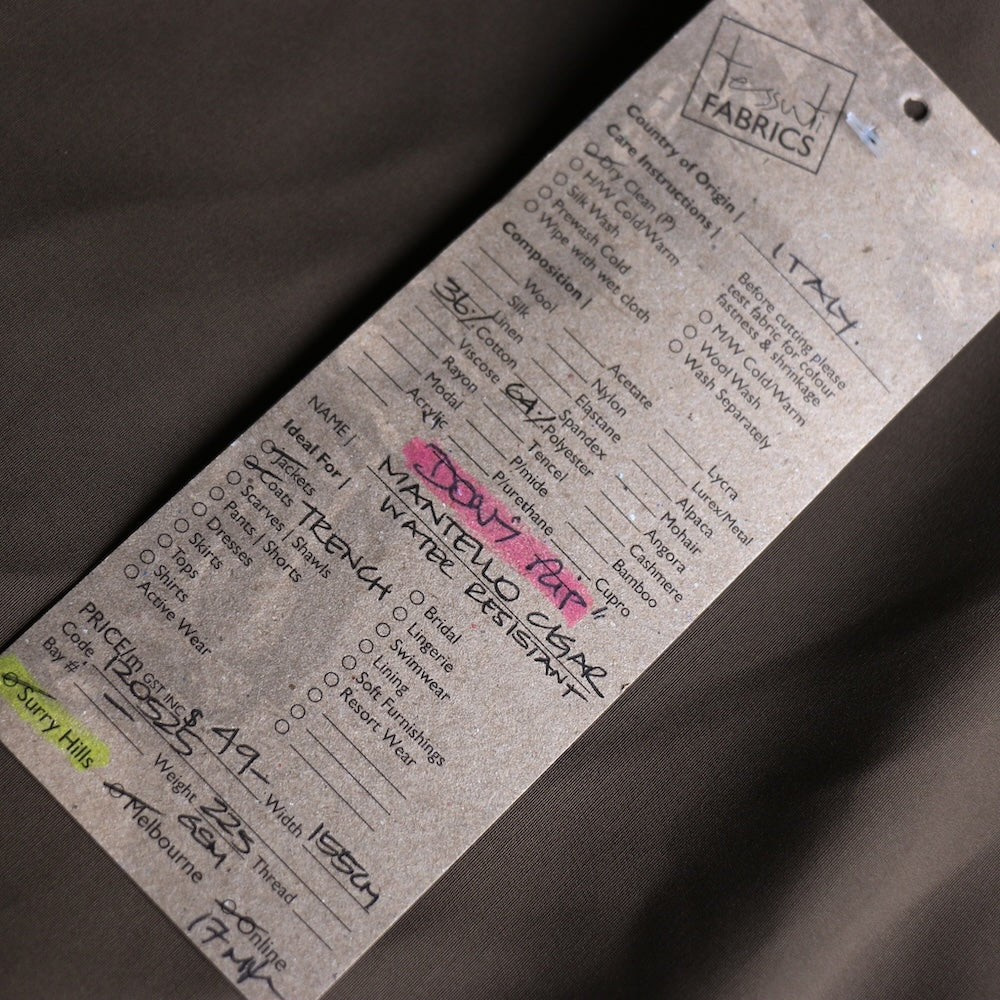 tessuti
FABRICS
Country of Origin | ITALY.
Care Instructions |
Dry Clean (P)
H/W Cold/Warm
Silk Wash
Prewash Cold
Wipe with wet cloth
Before cutting please
test fabric for colour
fastness & shrinkage
M/W Cold/Warm
Wool Wash
Wash Separately
Composition |
Wool
Silk
Linen
36% Cotton
Viscose
Rayon
Modal
Acrylic
Acetate
Nylon
Elastane
Spandex
64% Polyester
Tencel
P/mide
P/urethane
Lycra
Lurex/Metal
Alpaca
Mohair
Angora
Cashmere
Bamboo
Cupro
NAME | MANTELLO CIGAR
WATER RESISTANT
Ideal For |
Jackets
Coats TRENCH
Scarves | Shawls
Pants | Shorts
Dresses
Skirts
Tops
Shirts
Active Wear
Bridal
Lingerie
Swimwear
Lining
Soft Furnishings
Resort Wear
PRICE/m GST INC $49-
Code 120525
Bay #
Weight 225 GSM.
Width 155cm
Thread
Surry Hills
Melbourne
Online
17